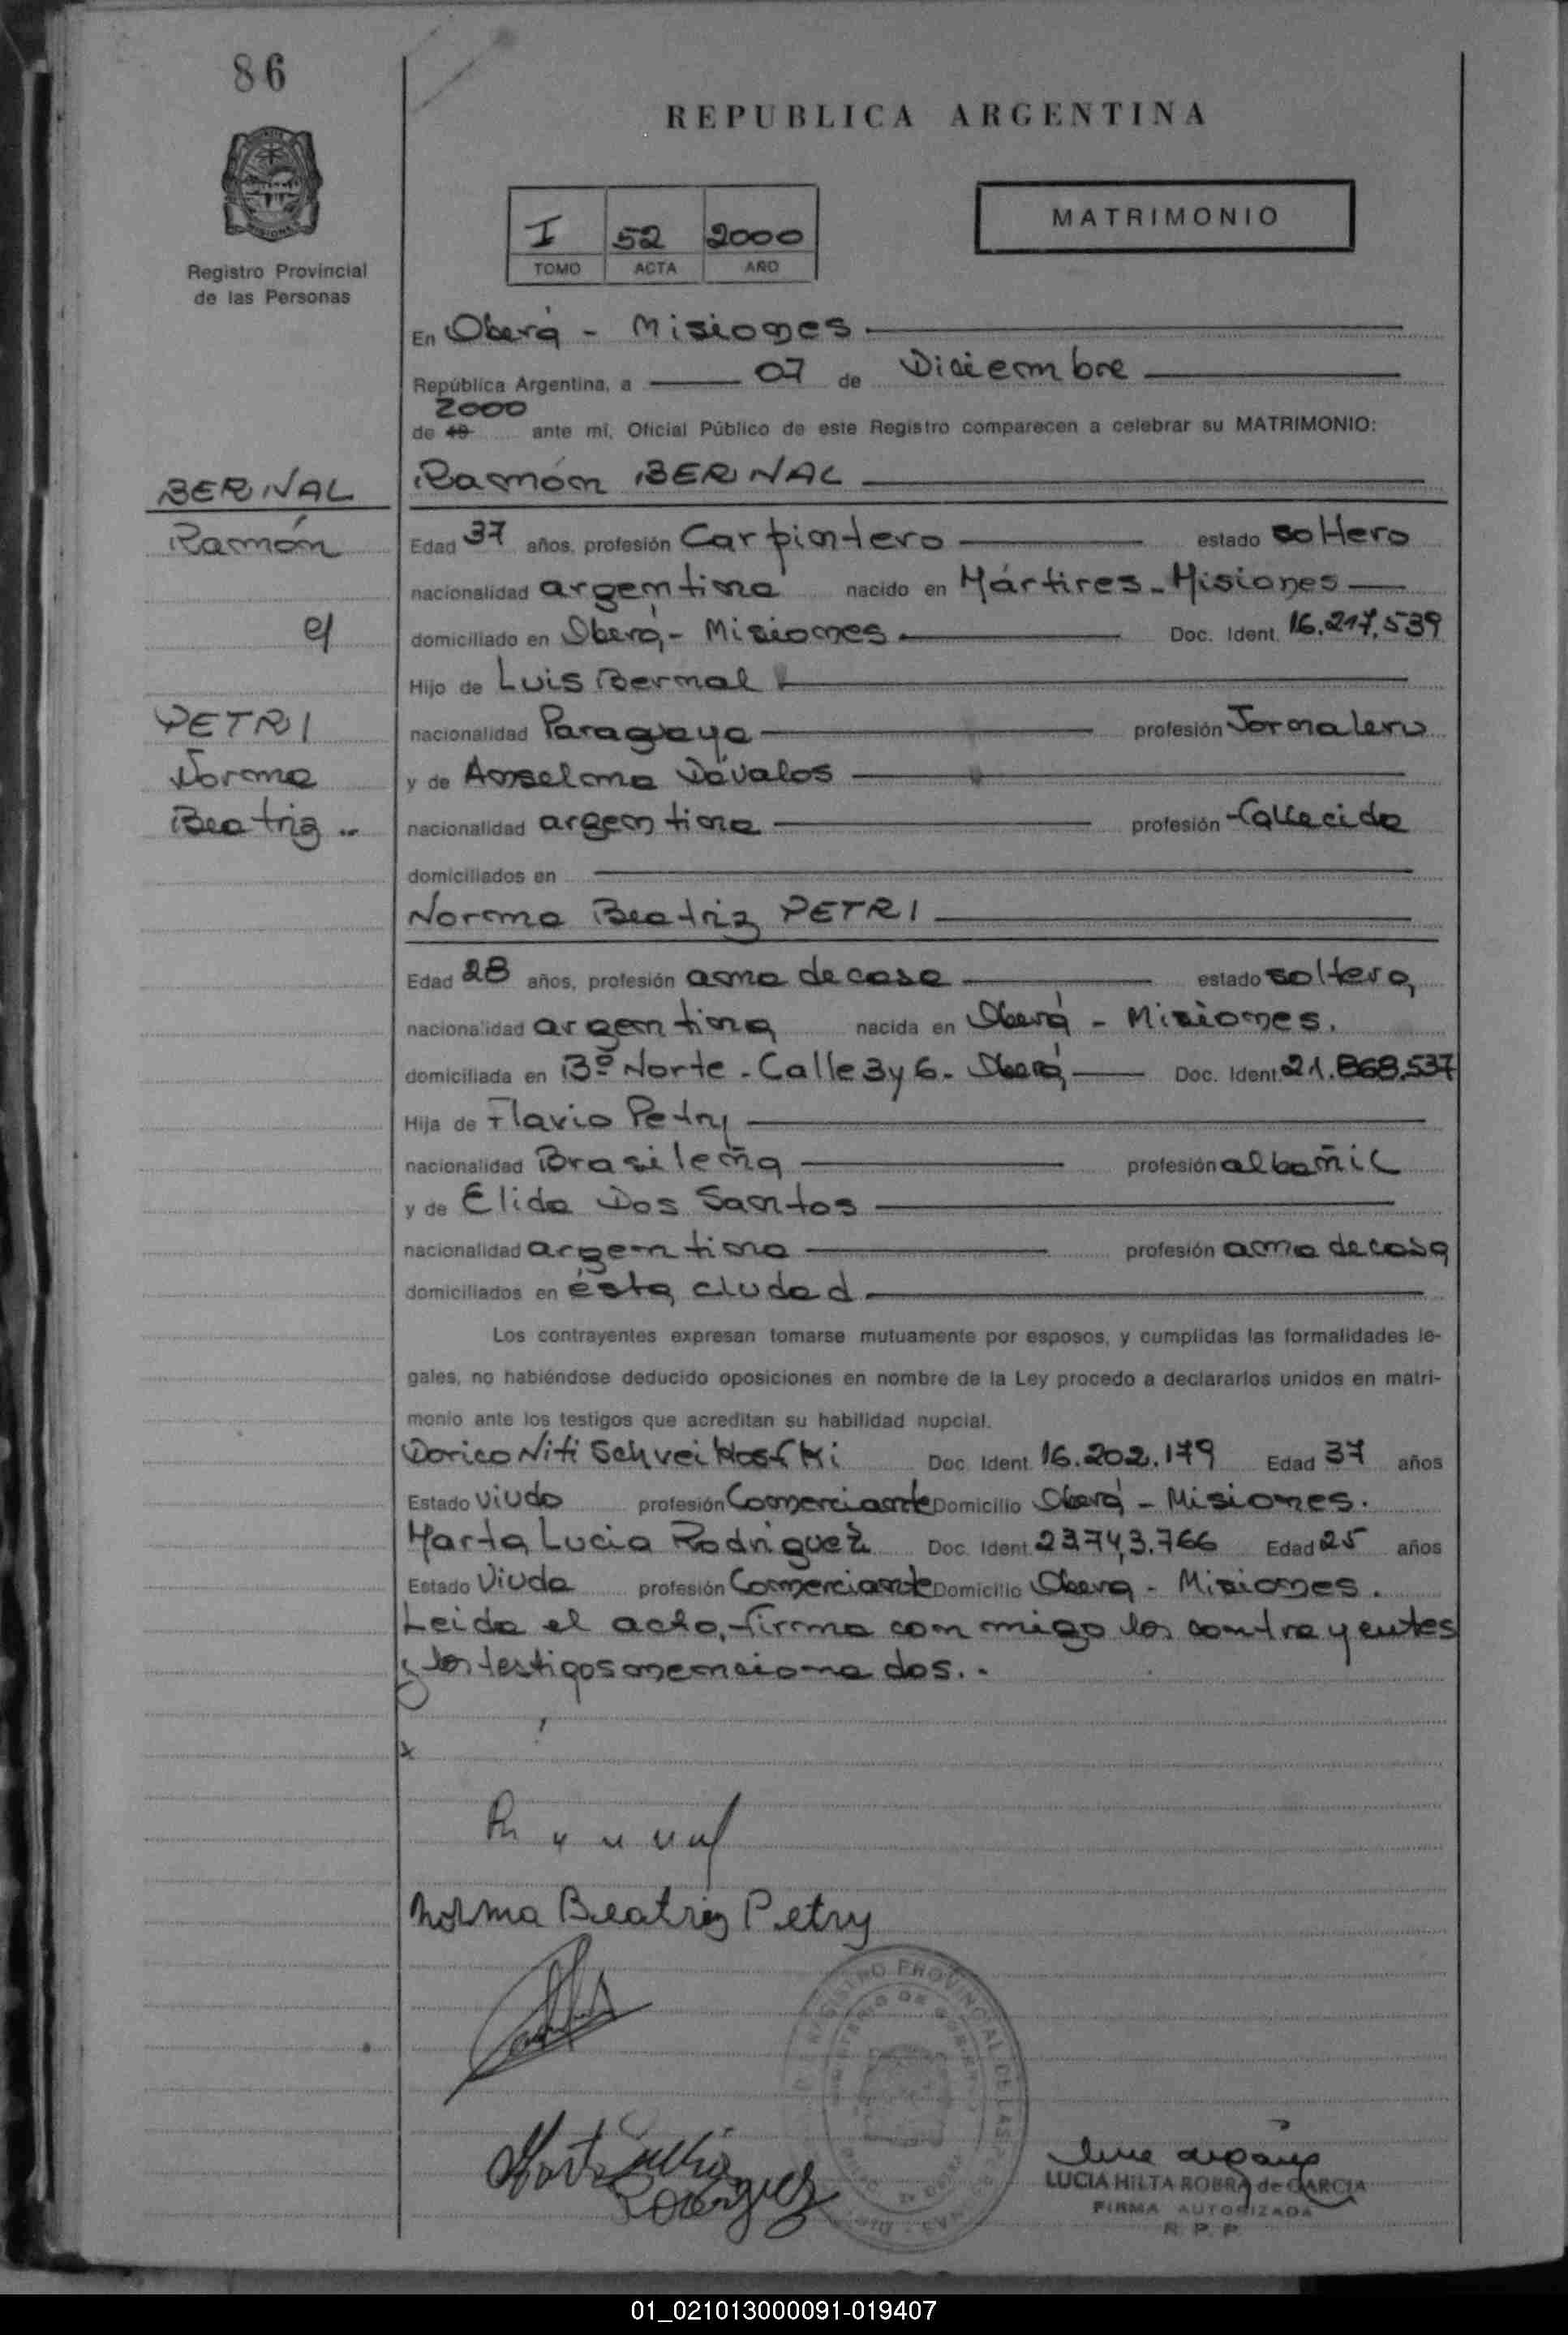 86
REPUBLICA ARGENTINA
MATRIMONIO
I 52 2000
TOMO ACTA AÑO
Registro Provincial
de las Personas
En Oberá - Misiones
República Argentina, a 07 de Diciembre
2000
de 19 ante mí, Oficial Público de este Registro comparecen a celebrar su MATRIMONIO:
BERNAL
Ramón
c/
PETRI
Norma
Beatriz ..
Ramón BERNAL
Edad 37 años, profesión Carpintero estado soltero
nacionalidad argentina nacido en Mártires - Misiones
domiciliado en Oberá - Misiones Doc. Ident. 16.217.539
Hijo de Luis Bernal
nacionalidad Paraguaya profesión Jornalero
y de Anselma Dávalos
nacionalidad argentina profesión fallecida
domiciliados en
Norma Beatriz PETRI
Edad 28 años, profesión ama de casa estado soltera
nacionalidad argentina nacida en Oberá - Misiones.
domiciliada en Bº Norte - Calle 3 y 6 - Oberá Doc. Ident. 21.868.537
Hija de Flavio Petry
nacionalidad Brasileña profesión albañil
y de Elida Dos Santos
nacionalidad argentina profesión ama de casa
domiciliados en ésta ciudad
Los contrayentes expresan tomarse mutuamente por esposos, y cumplidas las formalidades le-
gales, no habiéndose deducido oposiciones en nombre de la Ley procedo a declararlos unidos en matri-
monio ante los testigos que acreditan su habilidad nupcial.
Dorico Niti Doc. Ident. 16.202.179 Edad 37 años
Estado Viudo profesión Comerciante Domicilio Oberá - Misiones.
Marta Lucia Rodriguez Doc. Ident. 23.743.766 Edad 25 años
Estado Viuda profesión Comerciante Domicilio Obera - Misiones.
Leida el acta, firma con migo los contrayentes
y los testigos mencionados. .
x
Norma Beatriz Petry
Marta Lucia
Rodriguez
REGISTRO PROVINCIAL DE LAS PERSONAS
LUCIA HILTA ROBRA de GARCIA
FIRMA AUTORIZADA
R. P. P.
01_021013000091-019407